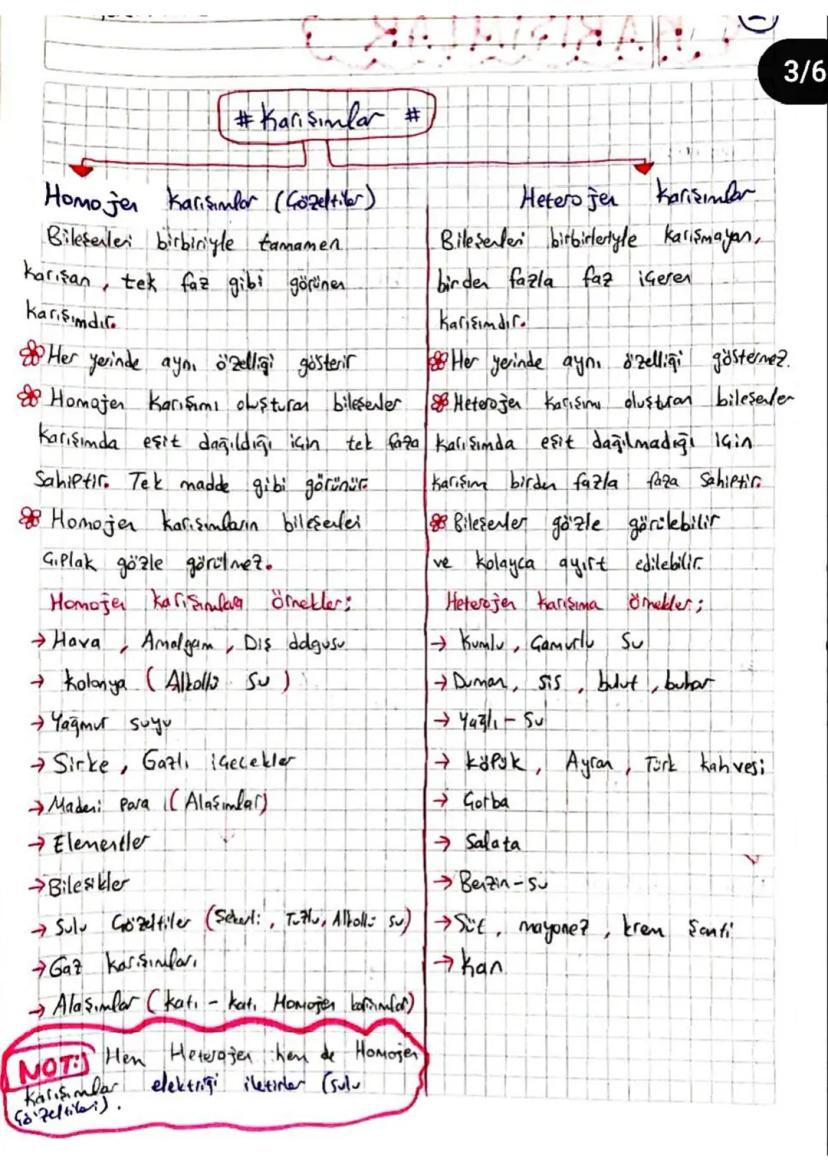 3/6
# Karışımlar #
Homojen Karışımlar (Çözeltiler)
Bileşenleri birbiriyle tamamen
karışan, tek faz gibi görünen
karışımdır.
Her yerinde aynı özelliği gösterir
Homojen karışımı oluşturan bileşenler
karışımda eşit dağıldığı için tek faza
sahiptir. Tek madde gibi görünür.
Homojen karışımların bileşenleri
çıplak gözle görülmez.
Homojen karışımlara Örnekler;
→ Hava, Amalgam, Diş dolgusu
→ Kolonya (Alkollü Su)
→ Yağmur suyu
→ Sirke, Gazlı içecekler
→ Madeni para (Alaşımlar)
→ Elementler
→ Bileşikler
→ Sulu Çözeltiler (Şekerli, Tuzlu, Alkollü su)
→ Gaz karışımları
→ Alaşımlar (katı - katı Homojen karışımlar)
NOT: Hem Heterojen hem de Homojen
karışımlar elektriği iletirler (sulu
çözeltileri).
Heterojen Karışımlar
Bileşenleri birbirleriyle karışmayan,
birden fazla faz içeren
karışımdır.
Her yerinde aynı özelliği göstermez.
Heterojen karışımı oluşturan bileşenler
karışımda eşit dağılmadığı için
karışım birden fazla faza sahiptir.
Bileşenler gözle görülebilir
ve kolayca ayırt edilebilir.
Heterojen karışıma Örnekler;
→ Kumlu, Çamurlu Su
→ Duman, sis, bulut, buhar
→ Yağlı - Su
→ Köpük, Ayran, Türk kahvesi
→ Çorba
→ Salata
→ Benzin - Su
→ Süt, mayonez, krem şanti
→ Kan